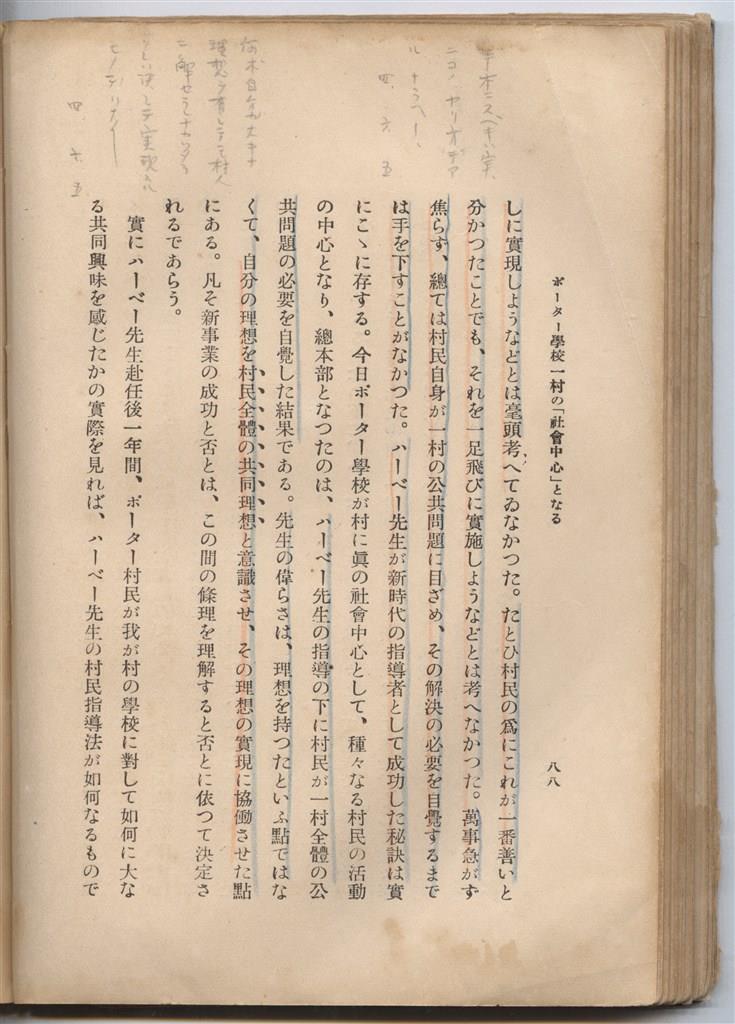 ポーター學校一村の「社會中心」となる
八八
しに實現しようなどとは毫頭考へてゐなかつた。たとひ村民の爲にこれが一番善いと
分かつたことでも、それを一足飛びに實施しようなどとは考へなかつた。萬事急がず
焦らす、總ては村民自身が一村の公共問題に目ざめ、その解決の必要を自覺するまで
は手を下すことがなかつた。ハーベー先生が新時代の指導者として成功した秘訣は實
にこゝに存する。今日ポーター學校が村に眞の社會中心として、種々なる村民の活動
の中心となり、總本部となつたのは、ハーベー先生の指導の下に村民が一村全體の公
共問題の必要を自覺した結果である。先生の偉らさは、理想を持つたといふ點ではな
くて、自分の理想を村民全體の共同理想と意識させ、その理想の實現に協働させた點
にある。凡そ新事業の成功と否とは、この間の條理を理解すると否とに依つて決定さ
れるであらう。
實にハーベー先生赴任後一年間、ポーター村民が我が村の學校に對して如何に大な
る共同興味を感じたかの實際を見れば、ハーベー先生の村民指導法が如何なるもので
四、六、五
理想ヲ有シテモ村人
四、六、五